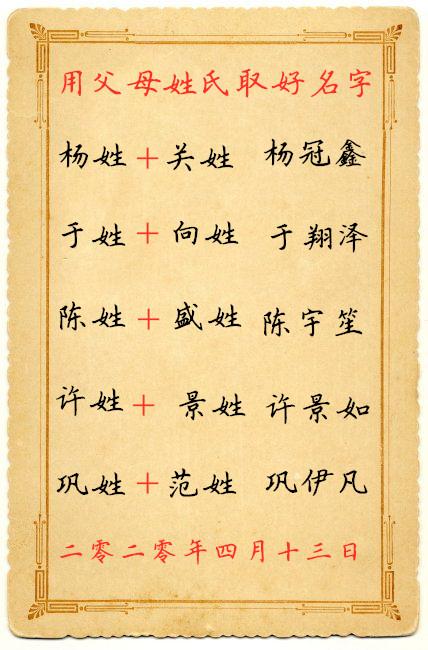 用父母姓氏取好名字
杨姓+关姓 杨冠鑫
于姓+向姓 于翔泽
陈姓+盛姓 陈宇笙
许姓+景姓 许景如
巩姓+范姓 巩伊凡
二零二零年四月十三日